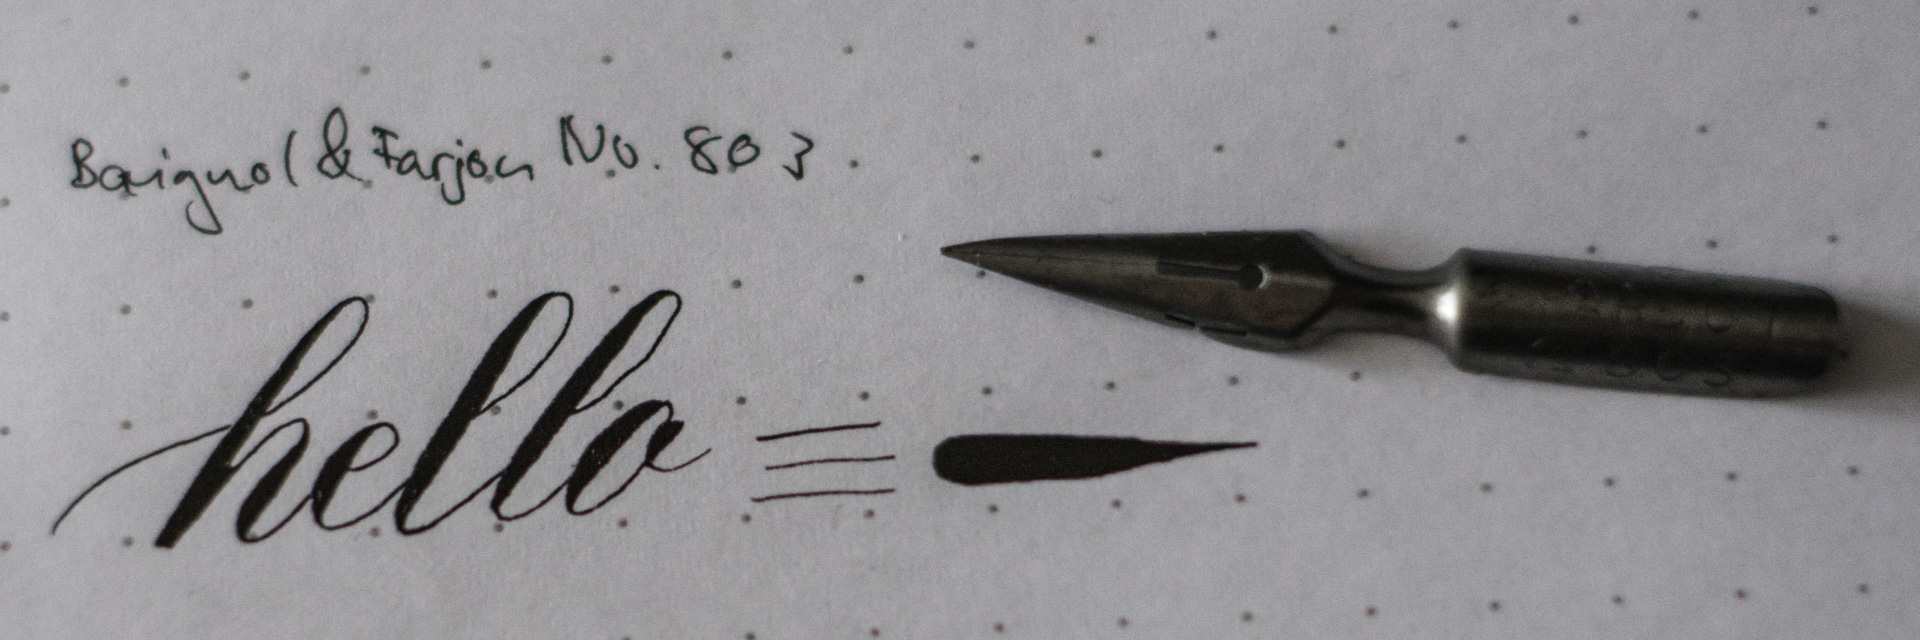 Baignol & Farjon No. 803
hello